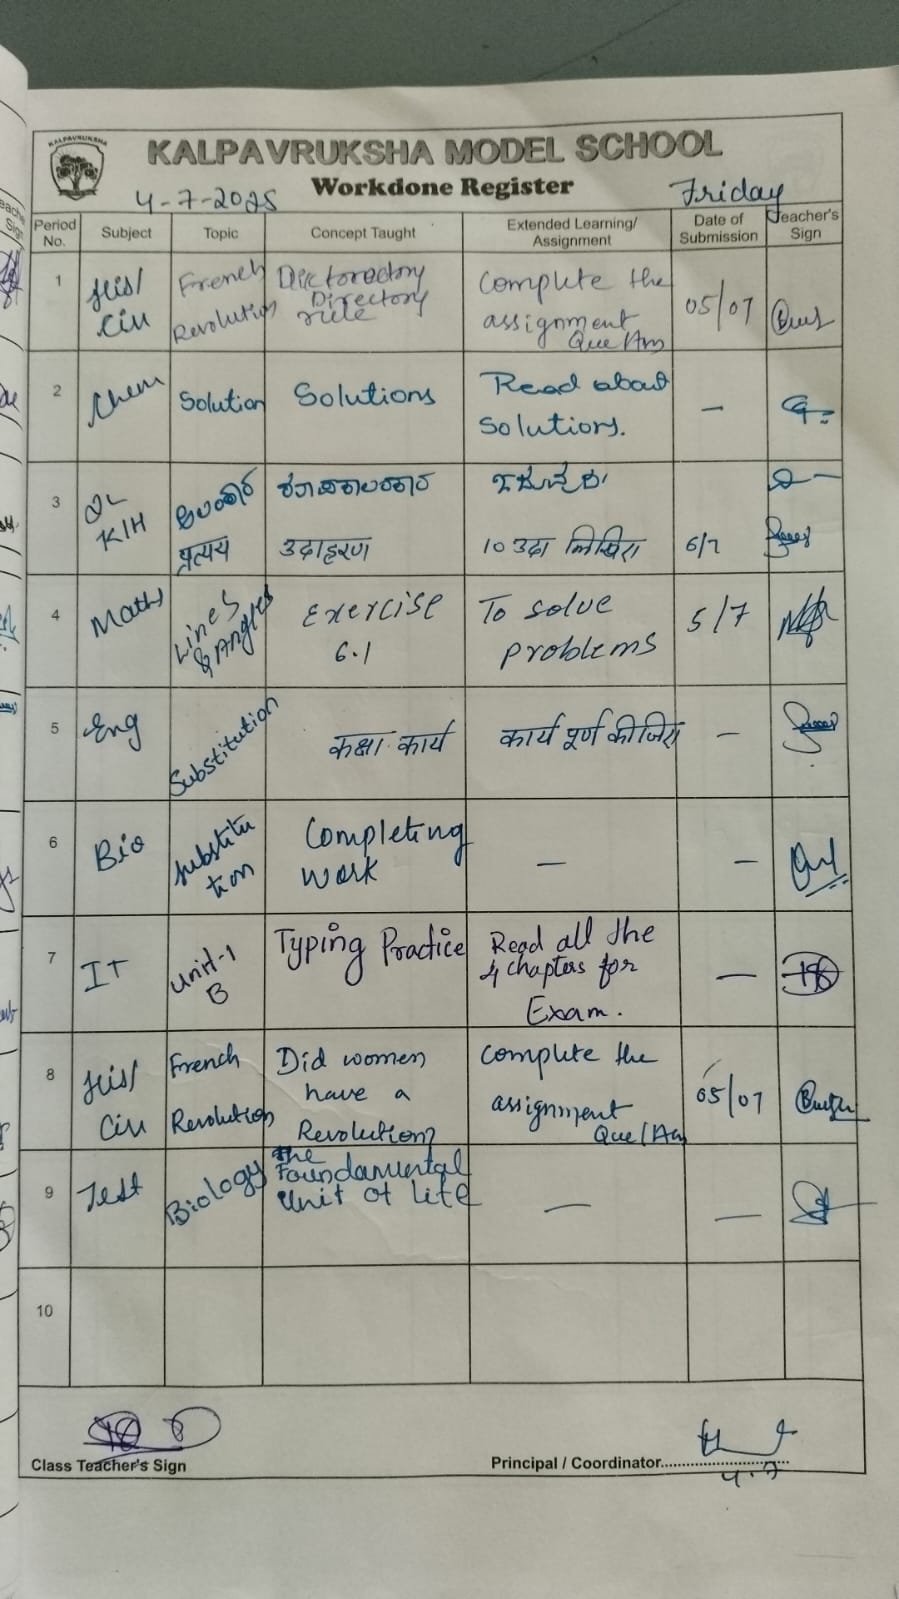 KALPAVRUKSHA
KALPAVRUKSHA MODEL SCHOOL
Workdone Register
4-7-2025
Friday
Period No.
Subject
Topic
Concept Taught
Extended Learning/ Assignment
Date of Submission
Teacher's Sign
1
His/
Civ
French
Revolution
Directory
rule
Complete the
assignment
Que/Ans
05/07
2
Chem
Solution
Solutions
Read about
Solutions.
-
3
2L
K/H
प्रत्यय
उदाहरण
10 उदा लिखिए
6/7
4
Maths
Lines
& Angles
Exercise
6.1
To solve
problems
5/7
5
Eng
Substitution
कक्षा कार्य
कार्य पूर्ण कीजिए
-
6
Bio
Substitu
tion
Completing
work
-
-
7
IT
Unit-1
B
Typing Practice
Read all the
4 chapters for
Exam.
-
8
His/
Civ
French
Revolution
Did women
have a
Revolution?
Complete the
assignment
Que/Ans
05/07
9
Test
Biology
The
Foundamental
Unit of Life
-
-
10
Class Teacher's Sign
Principal / Coordinator
4.7